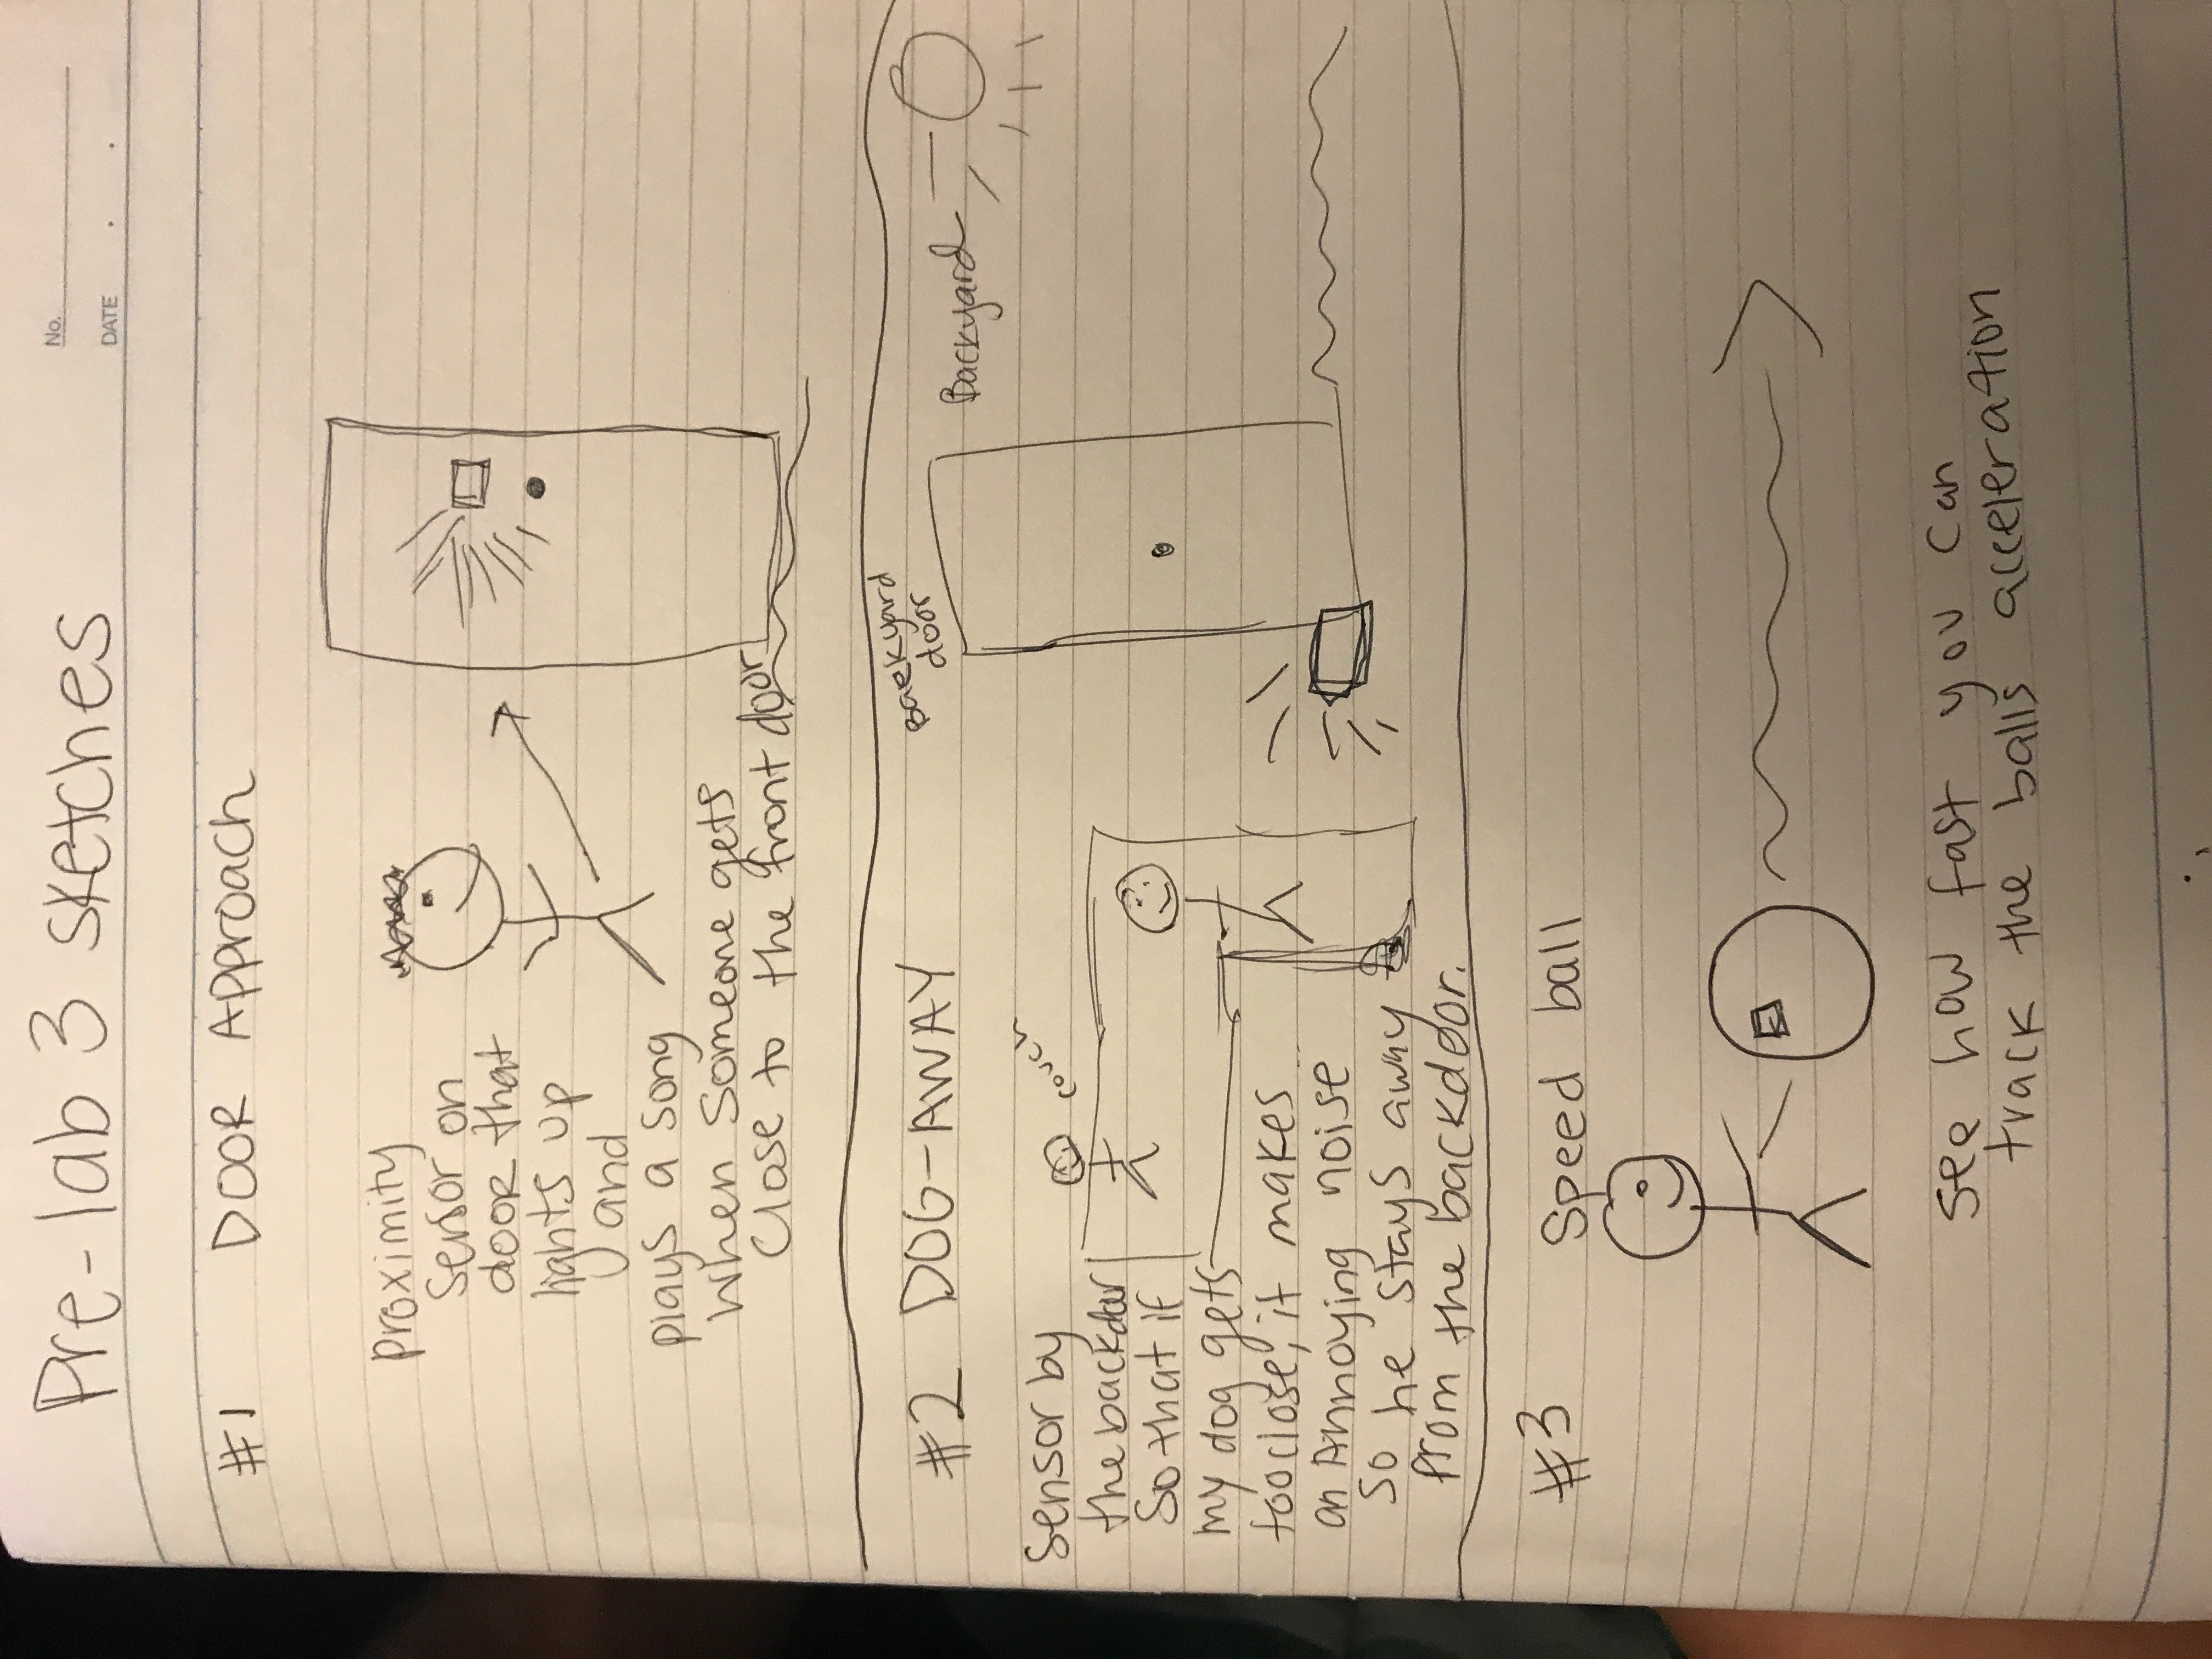 Pre-lab 3 sketches
No.
DATE . .
#1 DOOR Approach
proximity
sensor on
door that
lights up
and
plays a song
when someone gets
close to the front door
#2 DOG-AWAY
Backyard
door
Backyard
couch
Sensor by
the backdoor
So that if
my dog gets
too close, it makes
an Annoying noise
so he stays away
from the backdoor.
#3 Speed ball
see how fast you can
track the balls acceleration